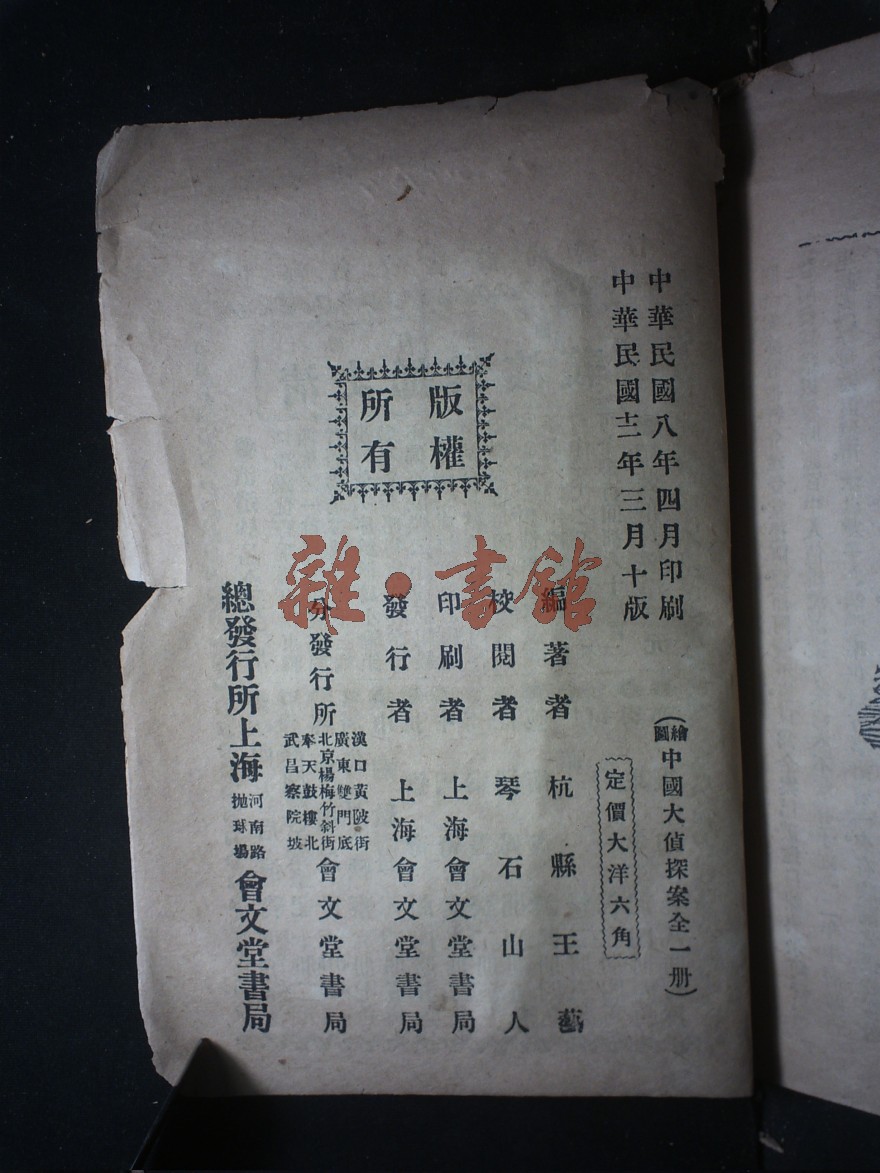 中華民國八年四月印刷
中華民國十二年三月十版
(繪圖中國大偵探案全一册)
定價大洋六角
版權
所有
編著者 杭縣王藝
校閱者 琴石山人
印刷者 上海會文堂書局
發行者 上海會文堂書局
分發行所
漢口黃陂街
廣東雙門底
北京楊梅竹斜街
奉天鼓樓北
武昌察院坡
會文堂書局
總發行所上海
河南路
拋球場
會文堂書局
雜·書館